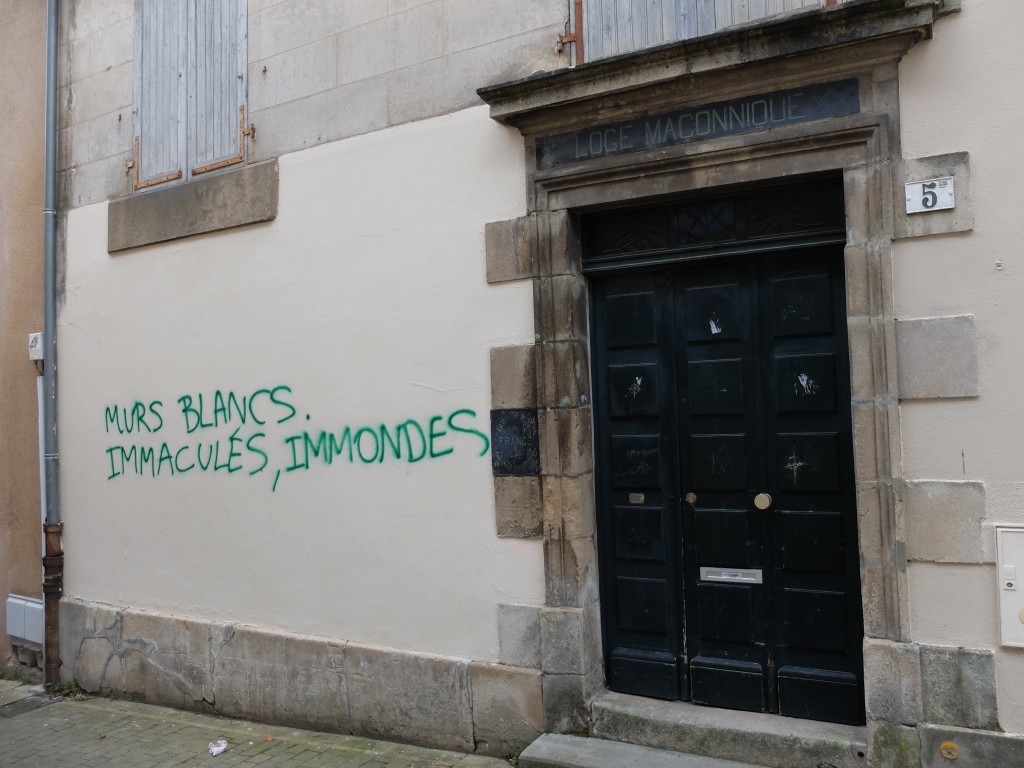 LOGE MAÇONNIQUE
5
MURS BLANCS.
IMMACULÉS, IMMONDES
FRANCE